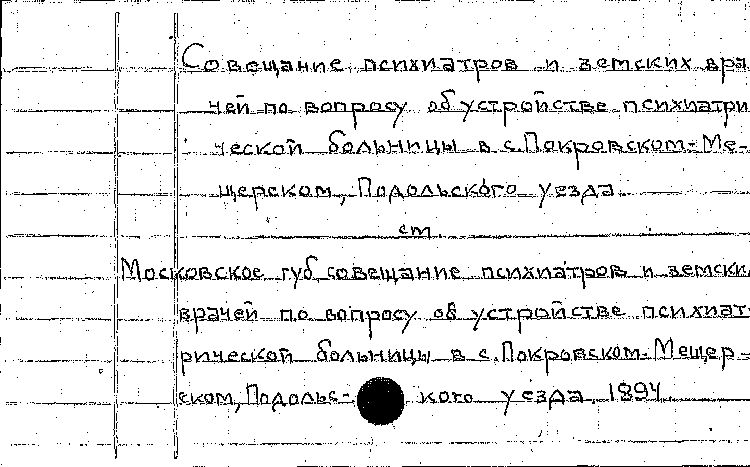 Совещание психиатров и земских вра
чей по вопросу об устройстве психиатри
ческой больницы в с. Покровском-Ме-
щерском, Подольского уезда.
см.
Московское губ. совещание психиатров и земски
врачей по вопросу об устройстве психиат
рической больницы в с. Покровском-Мещер-
ском, Подольс- кого уезда. 1894.